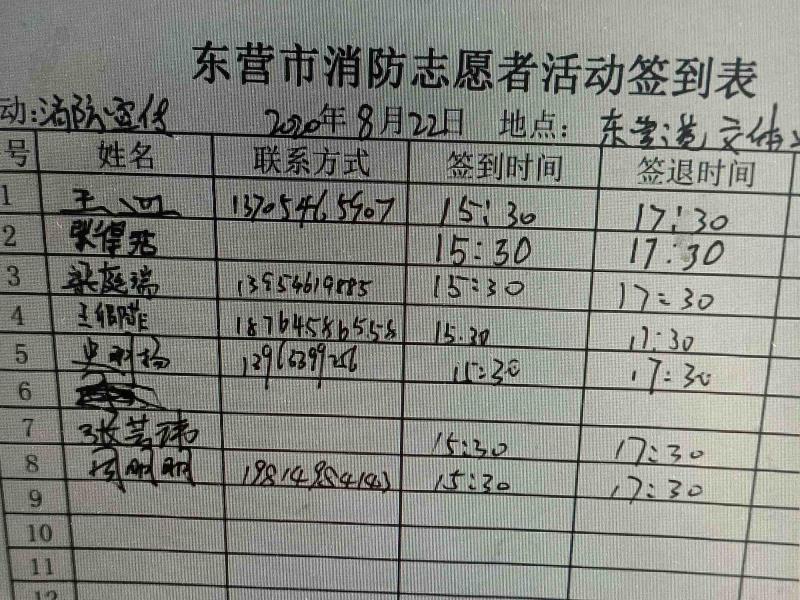 东营市消防志愿者活动签到表
动:消防宣传 2020年8月22日 地点: 东营港文体
号 姓名 联系方式 签到时间 签退时间
1 13705465907 15:30 17:30
2 15:30 17:30
3 梁庭瑞 13954619885 15:30 17:30
4 18764586558 15:30 17:30
5 15:30 17:30
6
7 15:30 17:30
8 15:30 17:30
9
10
11
12